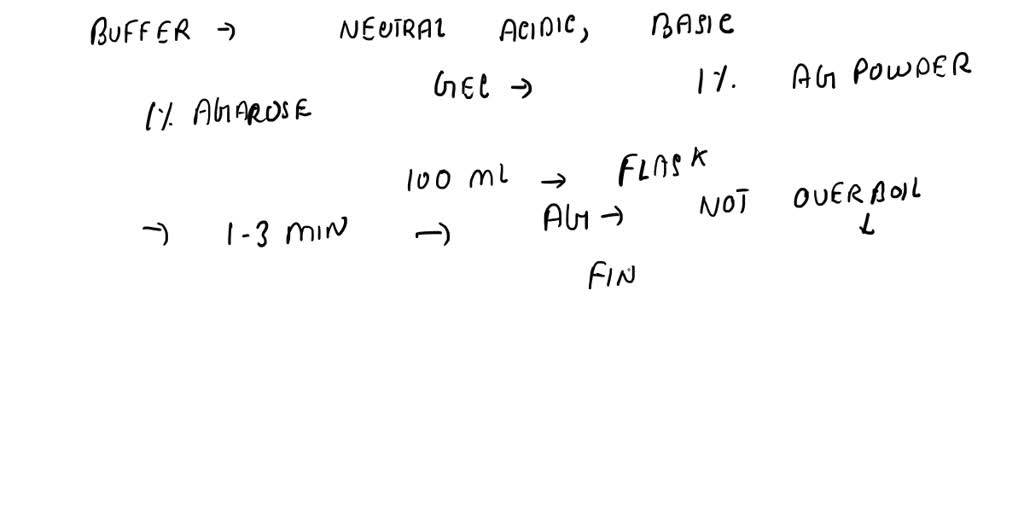 BUFFER → NEUTRAL ACIDIC, BASIC
1% AGAROSE GEL → 1% AG POWDER
100 ml → FLASK
→ 1-3 MIN → AG → NOT OVERBOIL ↓
FIN